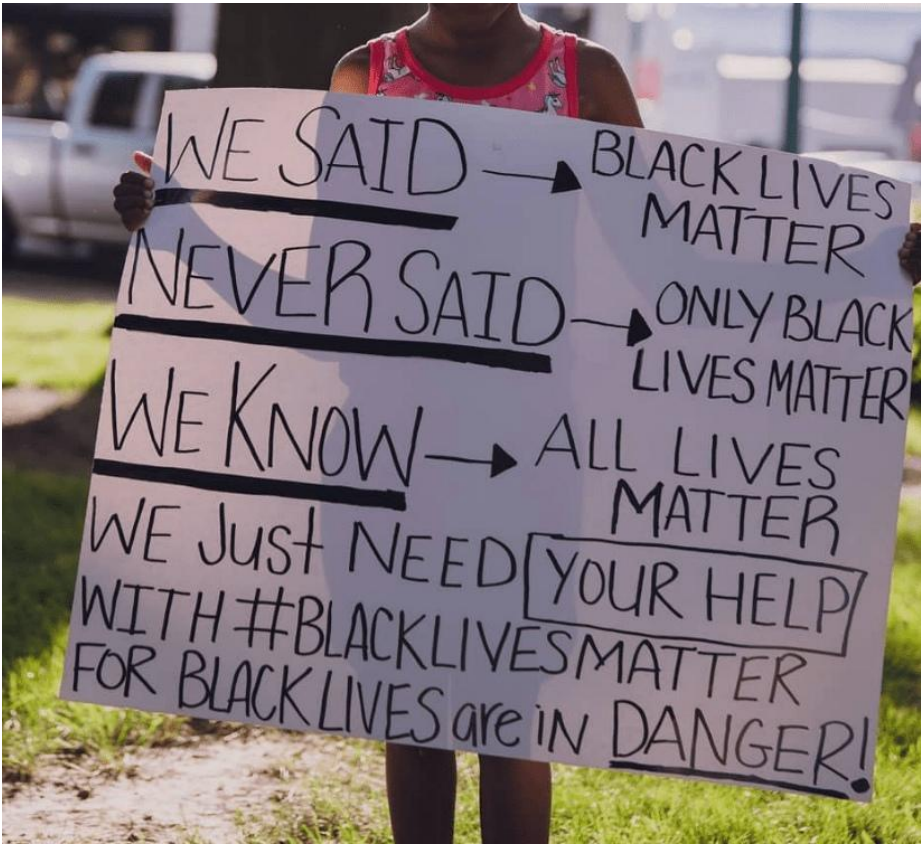 WE SAID → BLACK LIVES
MATTER
NEVER SAID → ONLY BLACK
LIVES MATTER
WE KNOW → ALL LIVES
MATTER
WE JusT NEED YOUR HELP
WITH #BLACKLIVESMATTER
FOR BLACK LIVES are iN DANGER!